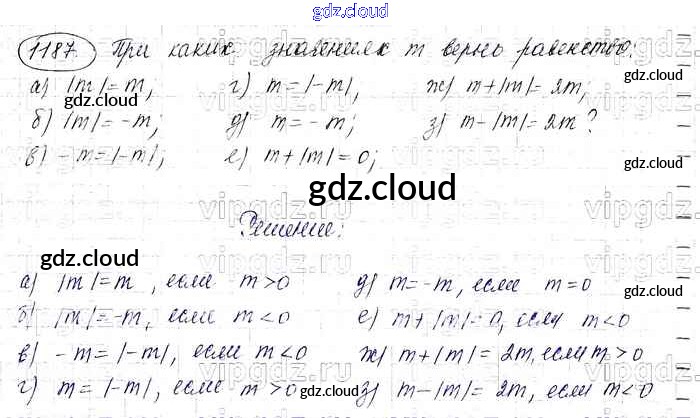 gdz.cloud
1187. При каких значениях m верно равенство:
а) |m|=m; г) m=|-m|, ж) m+|m|=2m;
gdz.cloud gdz.cloud gdz.cloud
б) |m|=-m; д) m=-m; з) m-|m|=2m?
в) -m=|-m|; е) m+|m|=0;
gdz.cloud
vipgdz.ru vipgdz.ru vipgdz.ru
Решение:
gdz.cloud
а) |m|=m, если m>0 д) m=-m, если m=0
gdz.cloud
б) |m|=-m, если m<0 е) m+|m|=0, если m<0
в) -m=|-m|, если m<0 ж) m+|m|=2m, если m>0
г) m=|-m|, если m>0 gdz.cloud з) m-|m|=2m, если m<0
gdz.cloud gdz.cloud